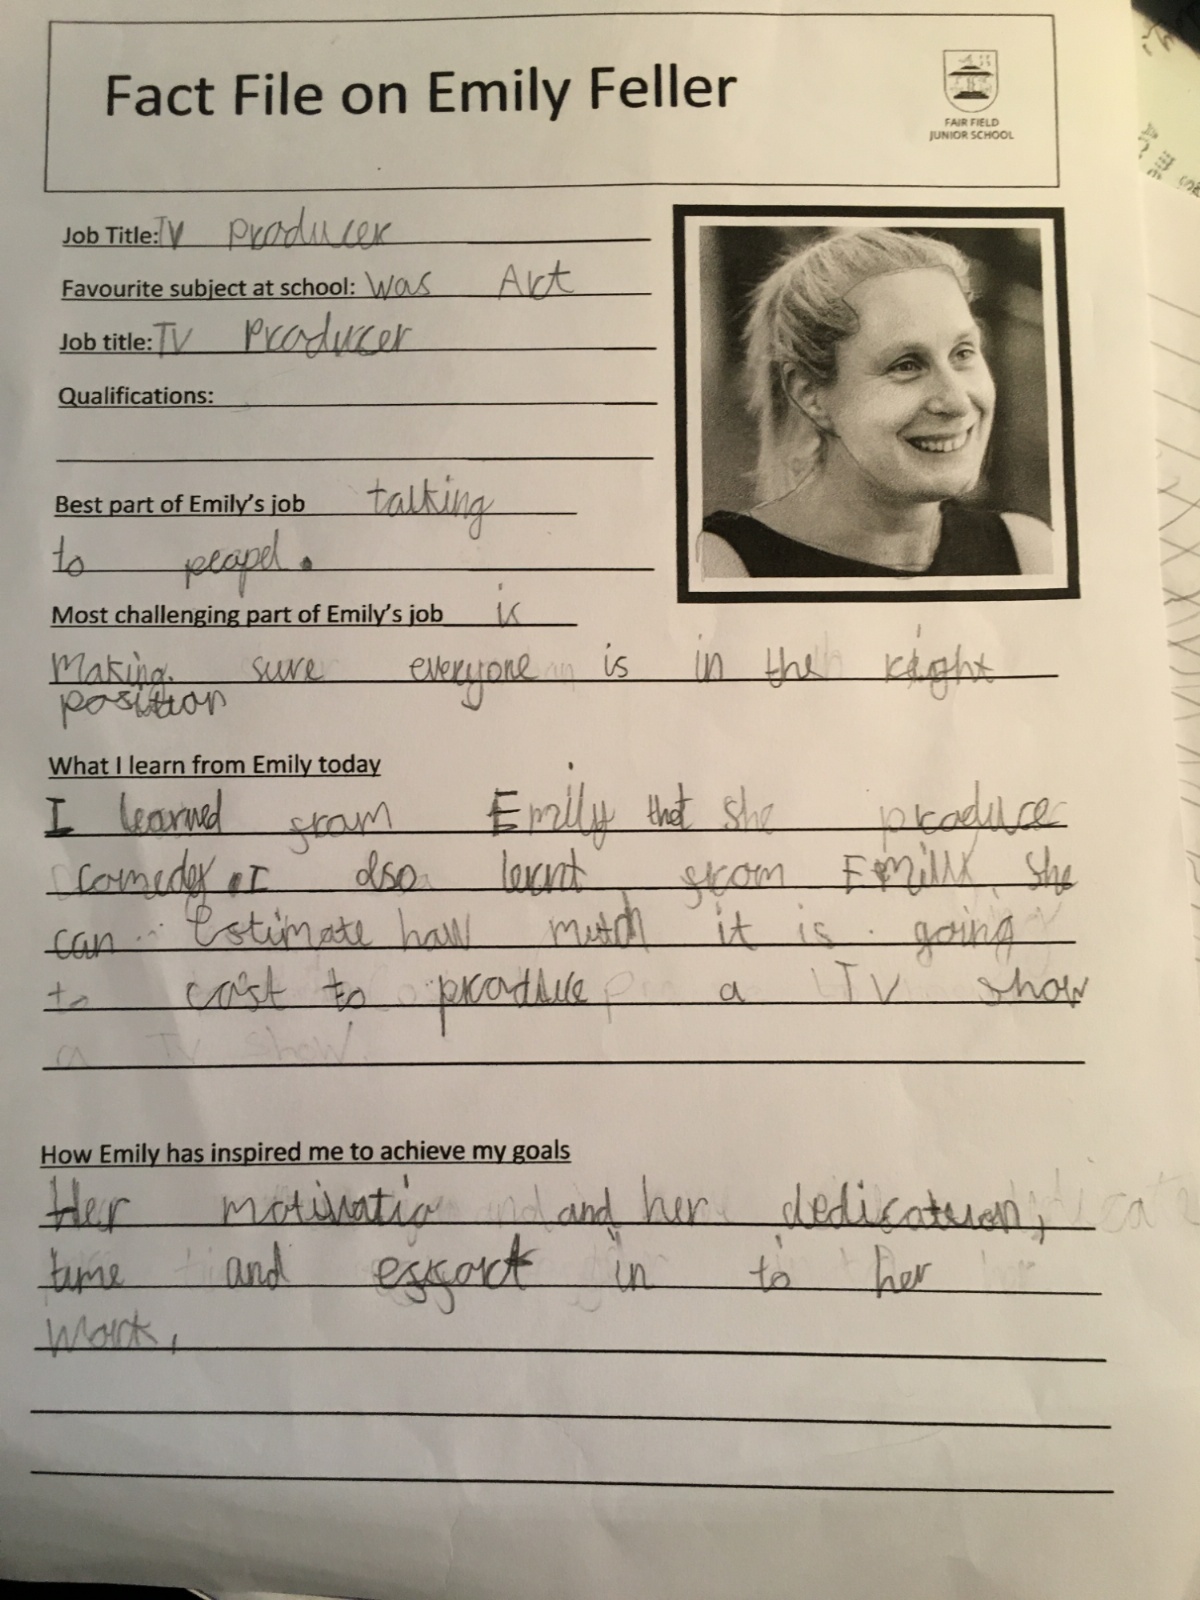 Fact File on Emily Feller
FAIR FIELD
JUNIOR SCHOOL
Job Title: TV producer
Favourite subject at school: Was Art
Job title: TV producer
Qualifications:
Best part of Emily's job talking
to peapel.
Most challenging part of Emily's job is
Making sure everyone is in the right
position
What I learn from Emily today
I learned from Emily that she produce
comedy. I also learnt from Emily she
can Estimate how much it is going
to cost to produce a TV show
a TV show.
How Emily has inspired me to achieve my goals
Her motivatio and her dedication,
time and effort in to her
work,